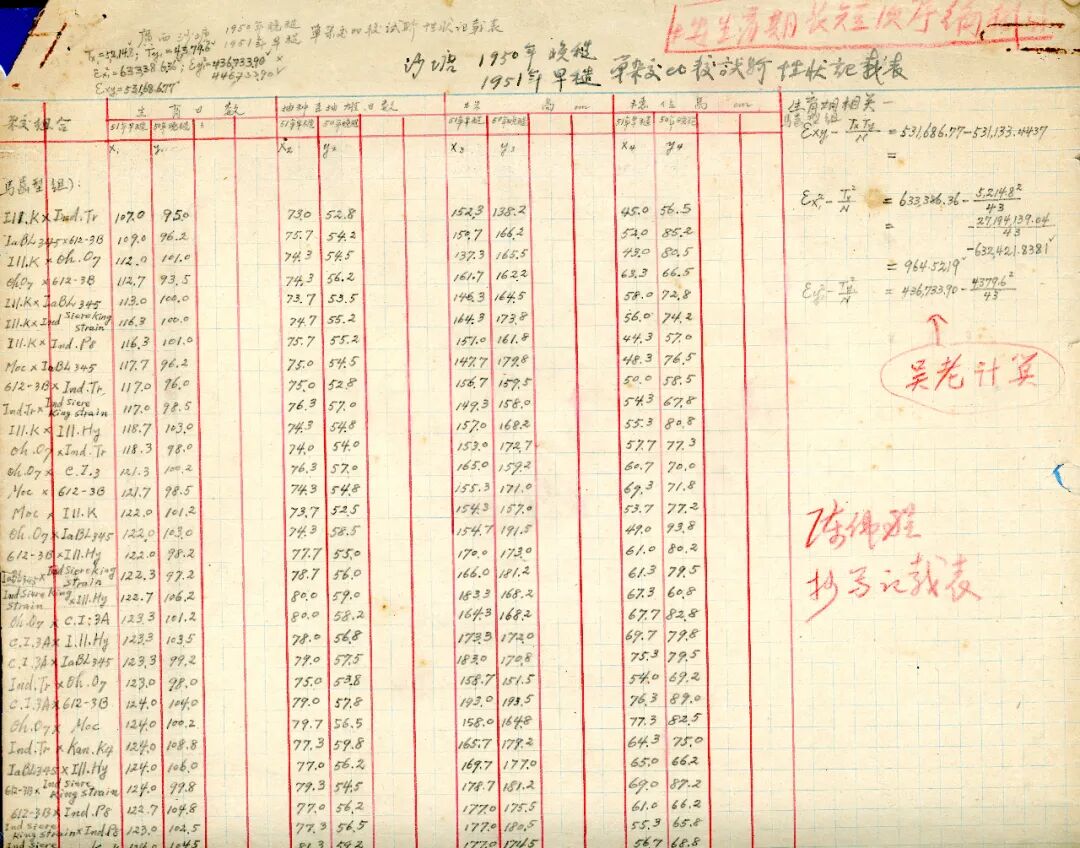 广西沙塘 1950年晚糙 1951年早糙 单杂交比较试验性状记载表
Tx=5214.8, Ty=4379.6
Ex²=633,386.36, Ey²=436,733.90
446,733.90
Exy=531,686.77
沙塘 1950年晚糙 1951年早糙 單杂交比較試验性状記载表
按生育期长短次序
杂交組合 生育日数 抽种至抽雄日数 株高cm 穗位高cm
51年早糙 50年晚糙 51年早糙 50年晚糙 51年早糙 50年晚糙 51年早糙 50年晚糙
x₁ y₁ x₂ y₂ x₃ y₃ x₄ y₄
馬齒型組):
Ill.K × Ind.Tr 107.0 95.0 73.0 52.8 152.3 138.2 45.0 56.5
IaBL345×612-3B 109.0 96.2 75.7 54.2 150.7 166.2 52.0 85.2
Ill.K × Oh.07 112.0 101.0 74.3 54.5 137.3 165.5 43.0 80.5
Oh07 × 612-3B 112.7 93.5 74.3 56.2 161.7 162.2 63.3 66.5
Ill.K × IaBL345 113.0 100.0 73.7 53.5 146.3 164.5 58.0 72.8
Ill.K × Ind Siere King strain 116.3 100.0 74.7 55.2 164.3 173.8 56.0 74.2
Ill.K × Ind.P8 116.3 101.0 75.7 55.2 151.0 161.8 44.3 57.0
Moc × IaBL345 117.7 96.2 75.0 54.5 147.7 179.8 48.3 76.5
612-3B × Ind.Tr. 117.0 96.0 75.0 52.8 156.7 159.5 50.0 58.5
Ind.Tr × Ind Siere King strain 117.0 98.5 76.3 57.0 149.3 158.0 54.3 67.8
Ill.K × Ill.Hy 118.7 103.0 74.3 54.8 157.0 168.2 55.3 80.8
Oh.07 × Ind.Tr 118.3 98.0 74.0 54.0 153.0 172.7 57.7 77.3
Oh.07 × C.I.3 121.3 100.2 76.3 57.0 165.0 159.2 60.7 70.0
Moc × 612-3B 121.7 98.5 74.3 54.8 155.3 171.0 69.3 71.8
Moc × Ill.K 122.0 101.2 73.7 52.5 154.3 157.0 53.7 77.2
Oh.07 × IaBL345 122.0 103.0 74.3 58.5 154.7 191.5 49.0 93.8
612-3B × Ill.Hy 122.0 98.2 77.7 55.0 170.0 173.0 61.0 80.2
IaBL345 × Ind Siere King strain 122.3 97.2 78.7 56.0 166.0 181.2 61.3 79.5
Ind Siere King strain × Ill.Hy 122.7 106.2 80.0 59.0 183.3 168.2 67.3 60.8
Oh.07 × C.I.3A 123.3 101.2 80.0 58.2 164.3 168.2 67.7 82.8
C.I.3A × Ill.Hy 123.3 103.5 78.0 56.8 173.3 172.0 69.7 79.8
C.I.3A × IaBL345 123.3 99.2 79.0 57.5 183.0 170.8 75.3 79.5
Ind.Tr × Oh.07 123.0 98.0 75.0 53.8 158.7 151.5 54.0 69.2
C.I.3A × 612-3B 124.0 104.0 79.0 57.8 193.0 193.5 76.3 89.0
Oh.07 × Moc 124.0 100.2 79.7 56.5 158.0 164.8 77.3 82.5
Ind.Tr × Kan.K4 124.0 108.8 77.3 59.8 165.7 179.2 64.3 75.0
IaBL345 × Ill.Hy 124.0 106.0 77.0 56.2 169.7 177.0 65.0 66.2
612-3B × Ind Siere King strain 124.0 99.8 79.3 54.5 178.7 181.2 69.0 87.2
612-3B × Ind.P8 122.7 104.8 77.0 56.2 177.0 175.5 61.0 66.2
Ind Siere King strain × Ind.P8 123.0 102.5 77.3 56.5 177.0 180.5 55.3 65.8
Ind Siere 104.5 81.3 59.2 177.0 174.5 56.7 68.8
生育期相关 —
馬齒型組
Exy₁ - TxTy/N = 531,686.77 - 531,133.4437
=
Ex₁² - Tx²/N = 633,386.36 - 5,214.8²/43
= 27,194,139.04/43
-632,421.8381
= 964.5219
Ey₁² - Ty₁²/N = 436,733.90 - 4379.6²/43
吴老计算
陈伟程
抄写记载表